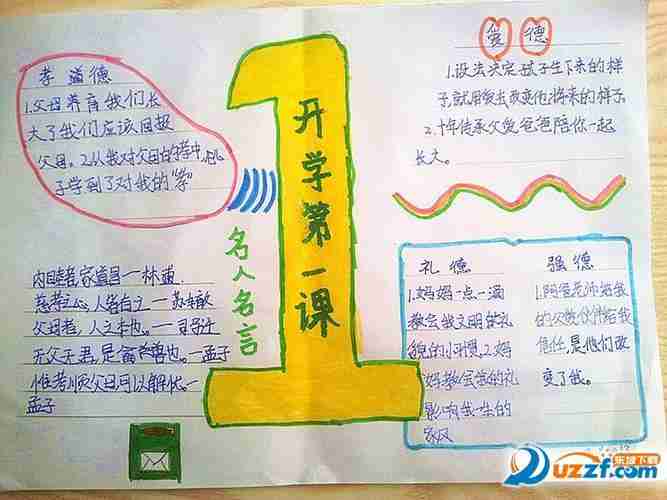 孝道德
1.父母养育我们长
大了我们应该回报
父母。2.从我对父母的孝中,儿
子学到了对我的“孝”
开学第一课
爱德
1.没法决定孩子生下来的样
子,就用爱去改变他将来的样子。
2.十年传承父爱爸爸陪你一起
长大。
名人名言
内睦者家道昌一林逋
慈孝之心,人皆有之一苏辙
父母者,人之本也。一司马迁
无父子君,是禽兽也。一孟子
惟孝顺父母可以解忧一
孟子
礼德
1.妈妈一点一滴
教会我文明的礼
貌的小习惯。2.妈
妈教会我的礼
影响我一生的
家风
强德
1.阿爸老师给我
的父爱伙伴给我
信任,是他们改
变了我。
乐域下载
uzzf.com